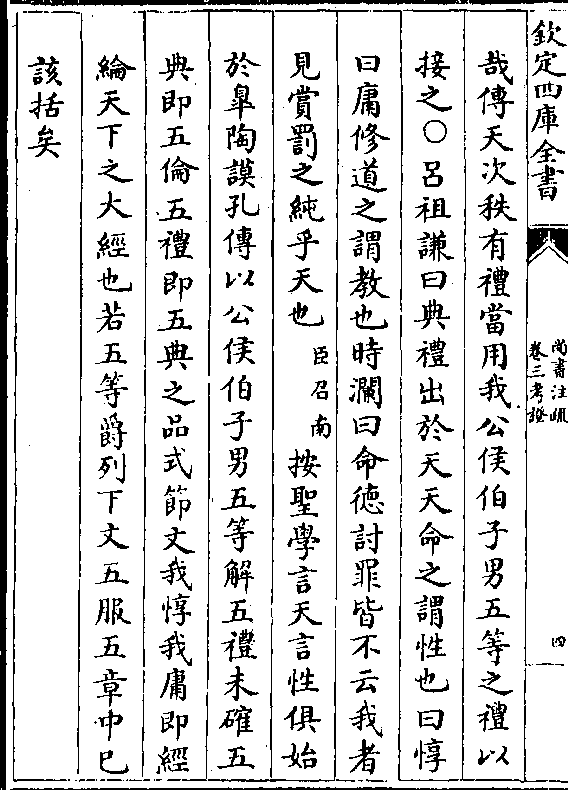 欽定四庫全書
尚書注疏
卷三考證
四
哉傳天次秩有禮當用我公侯伯子男五等之禮以
接之○呂祖謙曰典禮出於天天命之謂性也曰惇
曰庸修道之謂教也時瀾曰命德討罪皆不云我者
見賞罰之純乎天也臣召南按聖學言天言性俱始
於臯陶謨孔傳以公侯伯子男五等解五禮未確五
典即五倫五禮即五典之品式節文我惇我庸即經
綸天下之大經也若五等爵列下文五服五章中已
該括矣